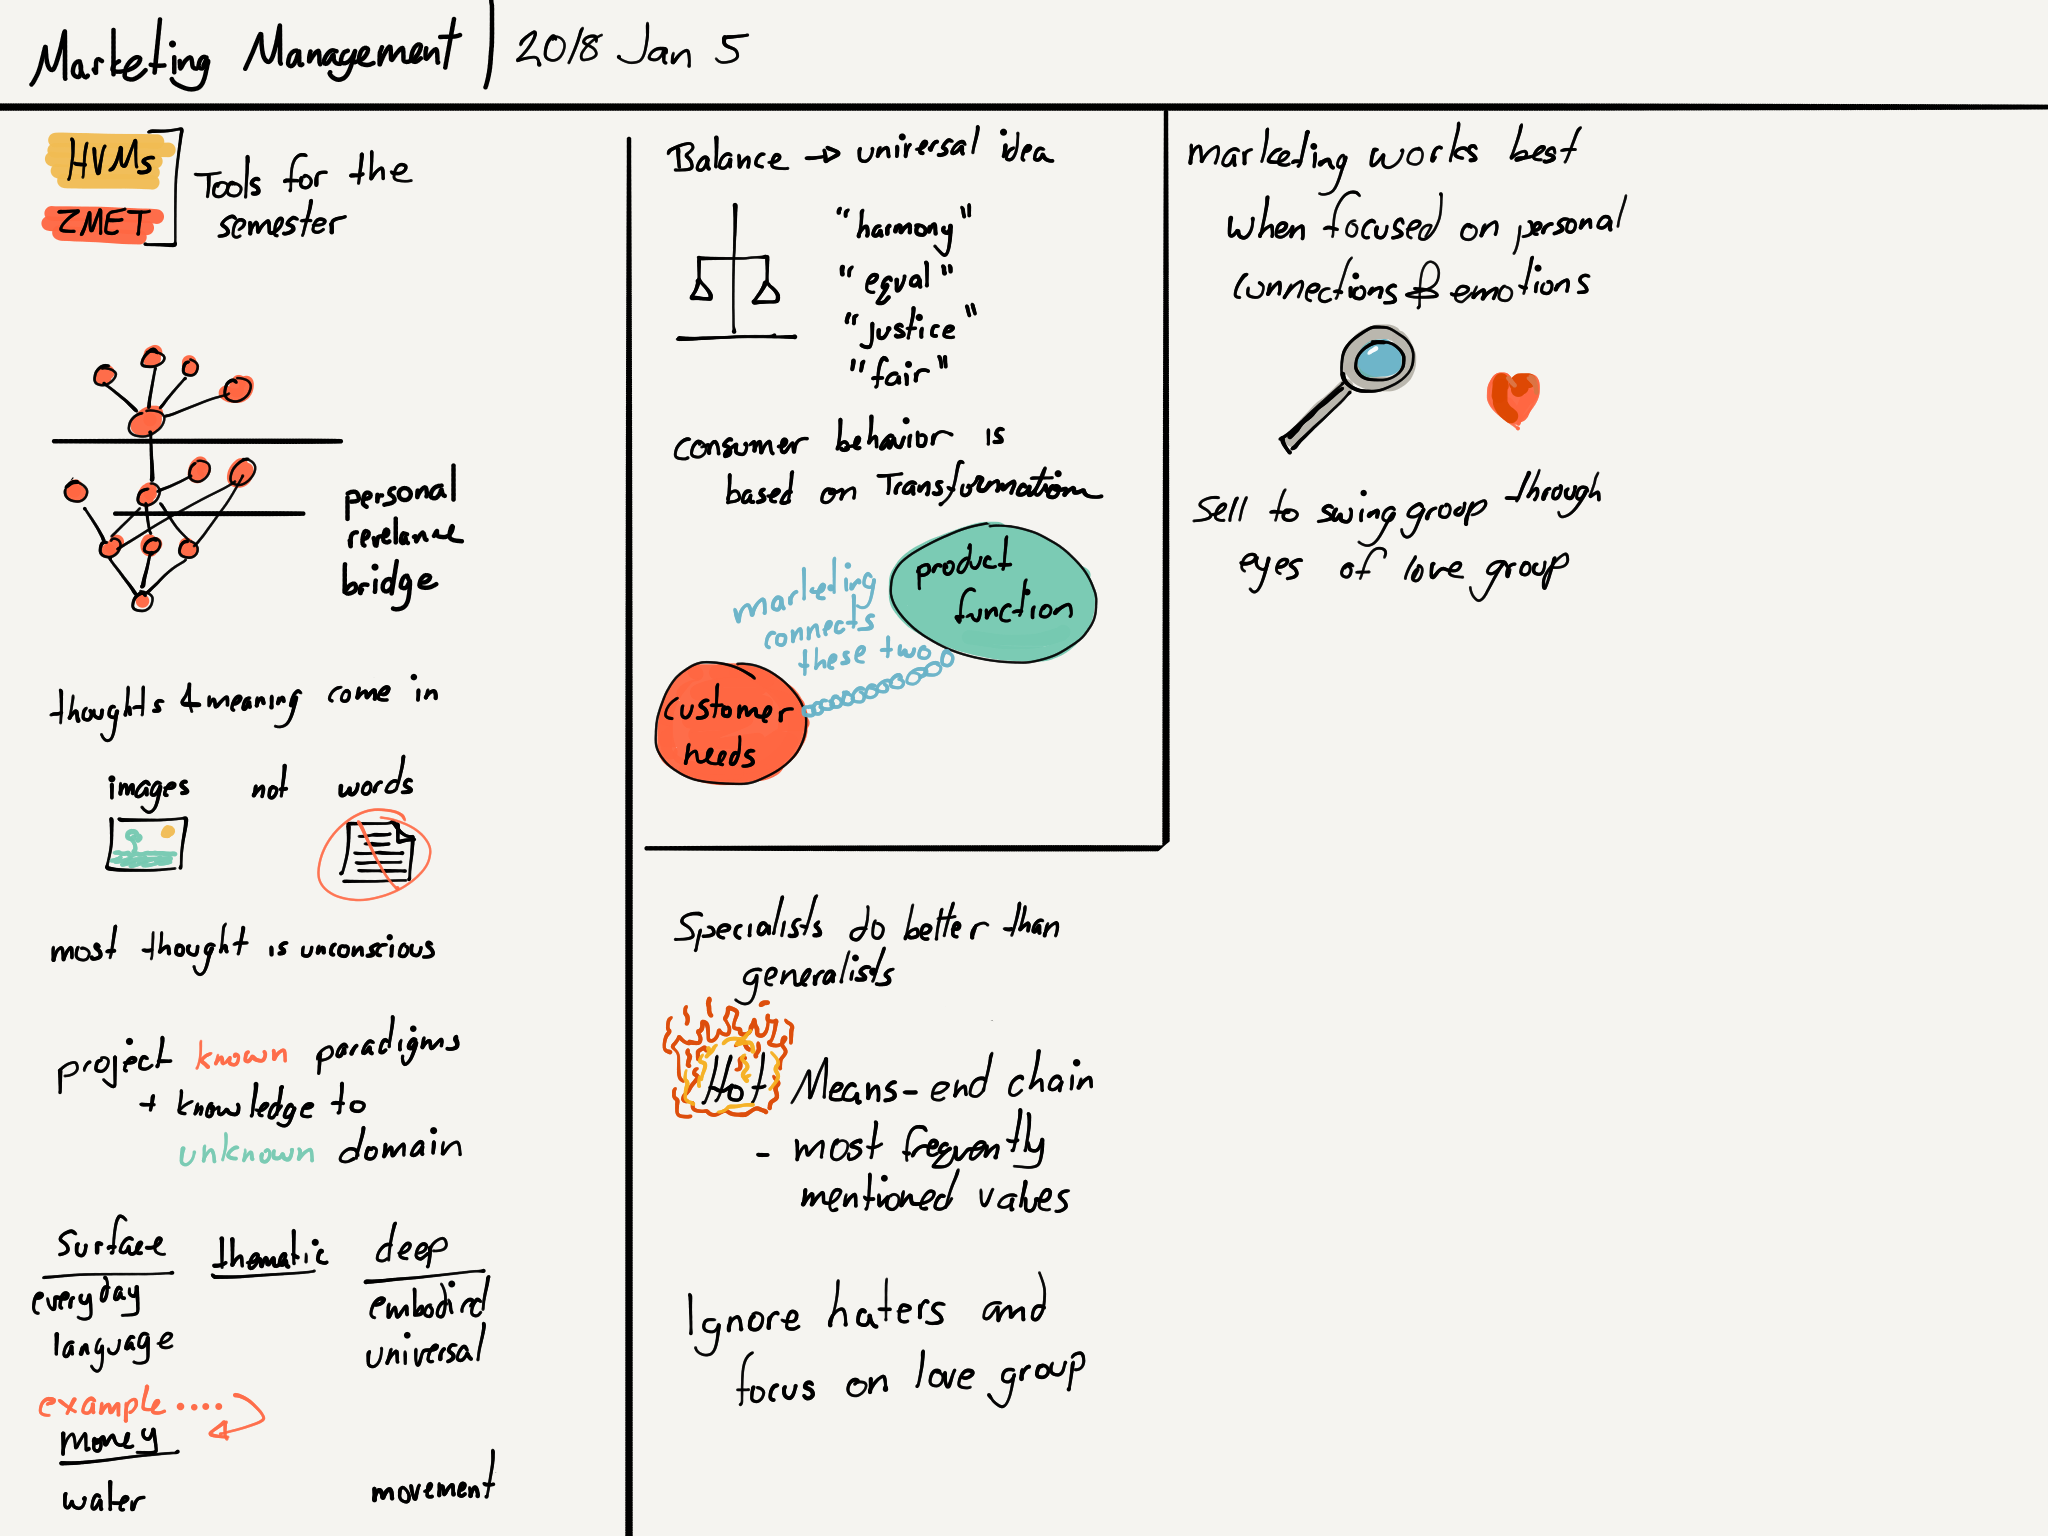 Marketing Management | 2018 Jan 5
HVMs
ZMET
Tools for the
semester
personal
revelance
bridge
thoughts & meaning come in
images not words
most thought is unconscious
project known paradigms
+ knowledge to
unknown domain
surface thematic deep
everyday
language
embodied
universal
example ....
money
water movement
Balance → universal idea
"harmony"
"equal"
"justice"
"fair"
consumer behavior is
based on Transformation
product
function
marketing
connects
these two
customer
needs
Specialists do better than
generalists
Hot Means-end chain
- most frequently
mentioned values
Ignore haters and
focus on love group
marketing works best
when focused on personal
connections & emotions
Sell to swing group through
eyes of love group